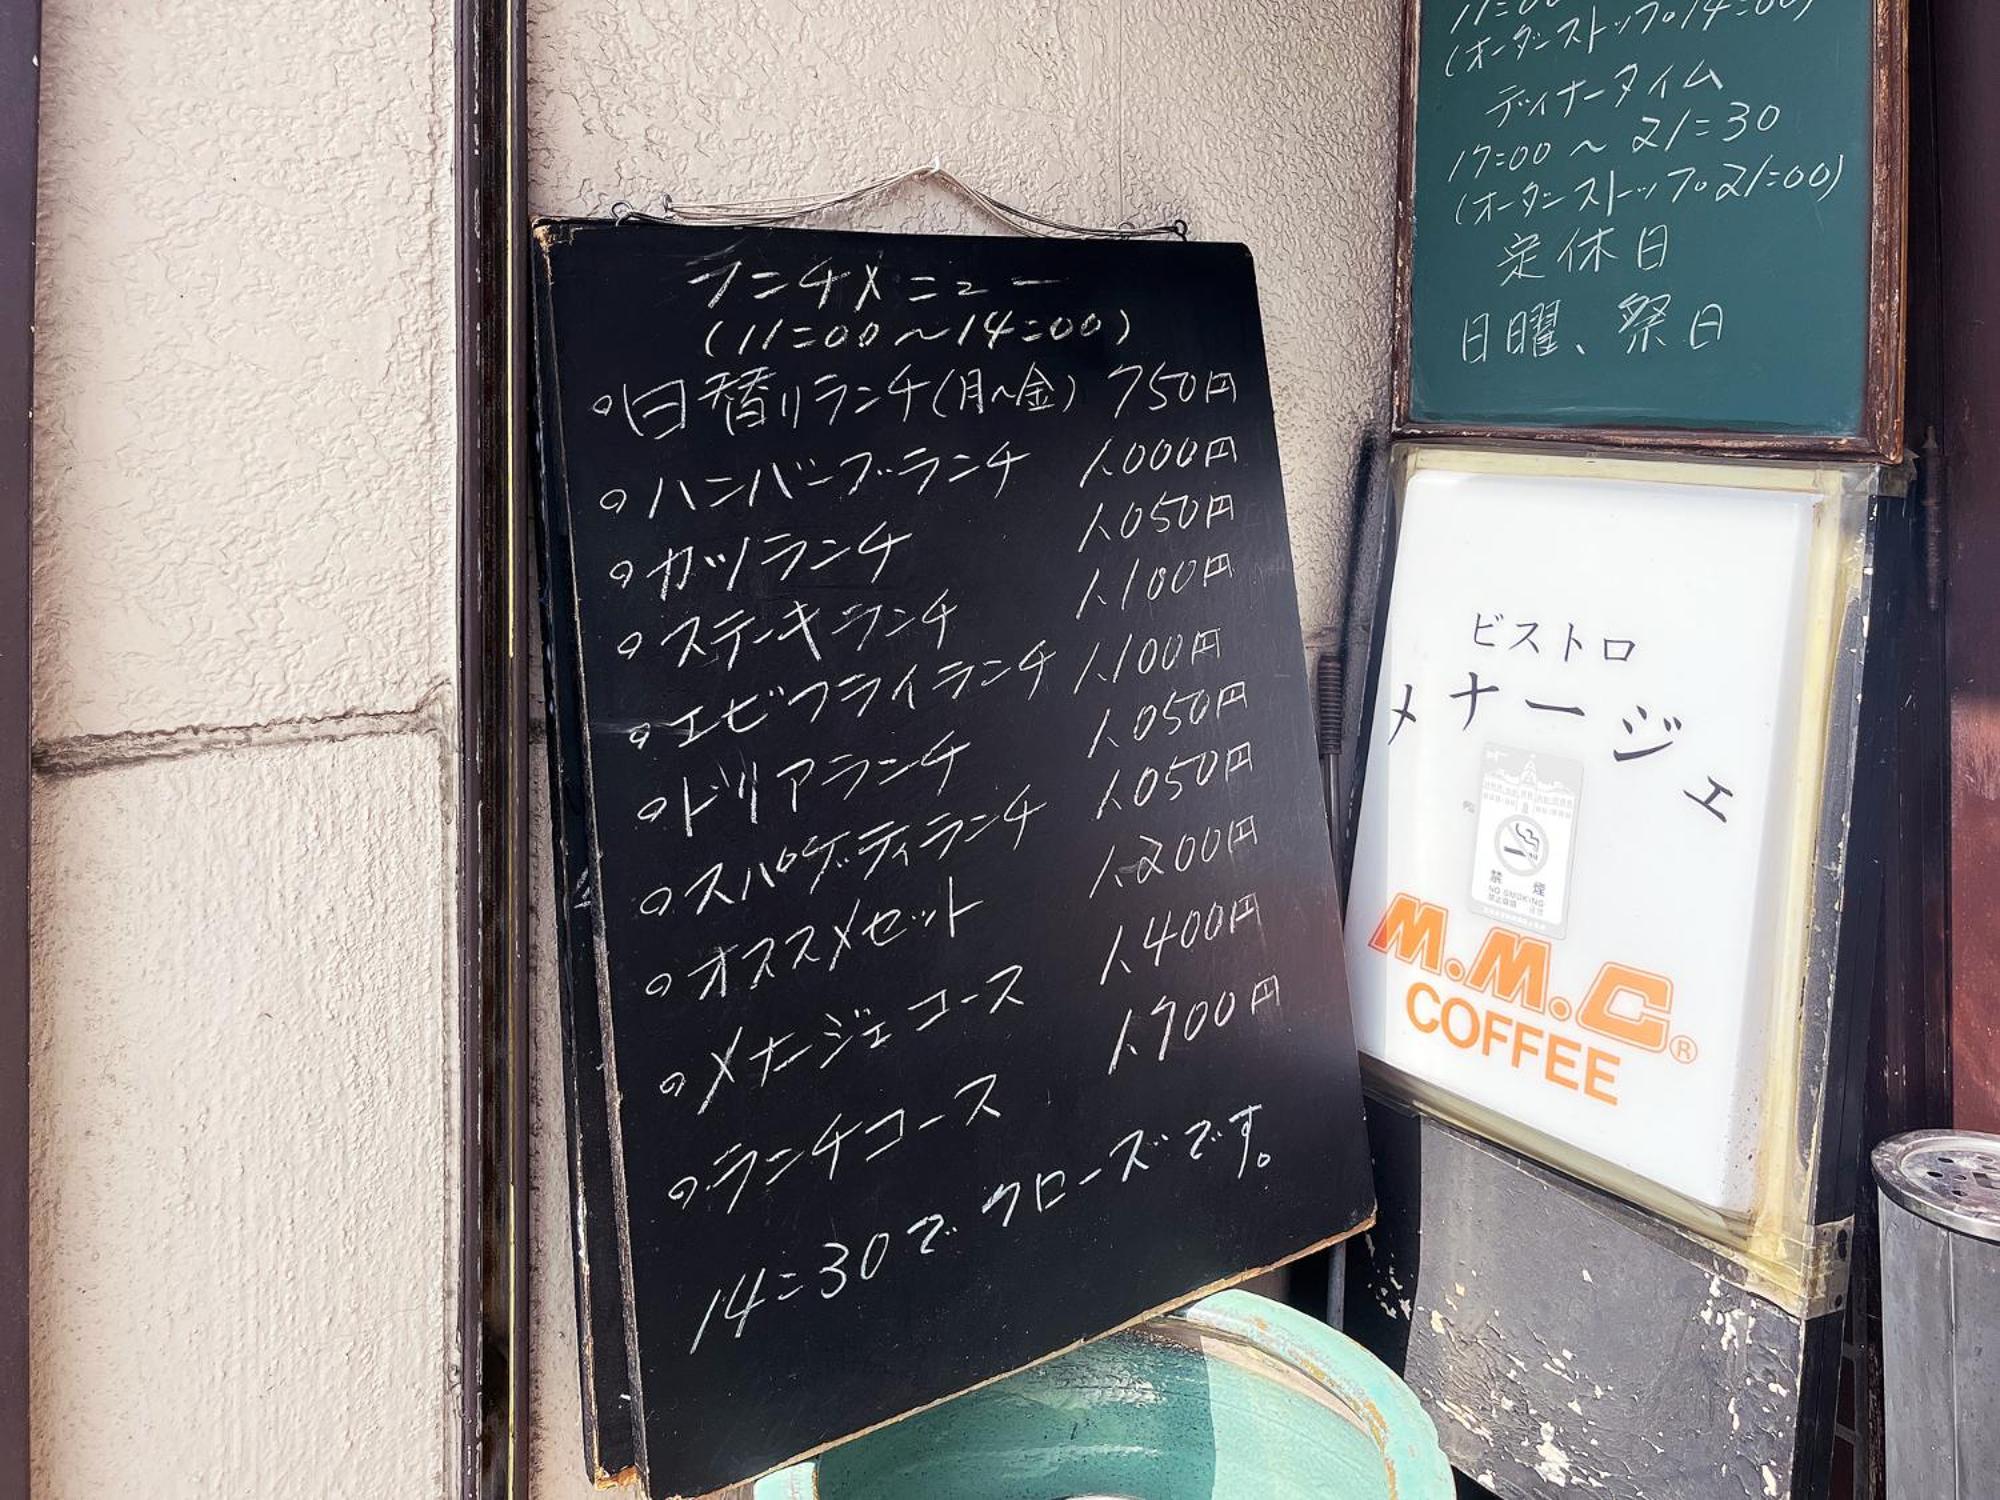 ランチメニュー
(11:00〜14:00)
日替りランチ(月〜金) 750円
ハンバーグランチ 1,000円
カツランチ 1,050円
ステーキランチ 1,100円
エビフライランチ 1,100円
ドリアランチ 1,050円
スパゲッティランチ 1,050円
オススメセット 1,200円
メナージェコース 1,400円
ランチコース 1,700円
14:30でクローズです。
11:00
(オーダーストップ14:00)
ディナータイム
17:00〜21:30
(オーダーストップ21:00)
定休日
日曜、祭日
ビストロ
メナージェ
禁煙
NO SMOKING
M.M.C®
COFFEE